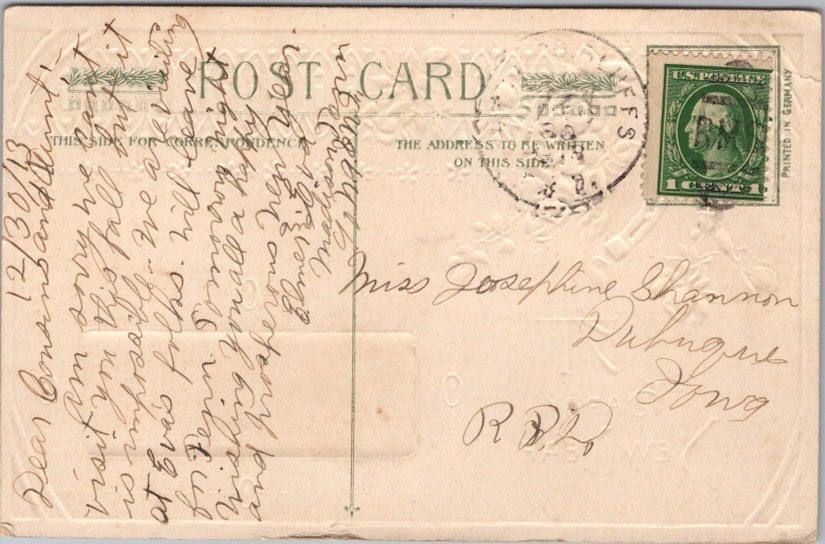 POST CARD
THIS SIDE FOR CORRESPONDENCE
THE ADDRESS TO BE WRITTEN
ON THIS SIDE.
PRINTED IN GERMANY
U.S. POSTAGE
1 CENT 1
BLUFFS
R.M.
12/30/13
Dear Cousins and Aunt:-
am sorry we can't
visit you this fall but it
is impossible. We are visiting
at Eva's folks. Will leave
for Tenn Tomorrow night
Wishing you all a happy
and prosperous New Year
Elmer
Madison Tenn
Miss Josephine Shannon
Dubuque
Iowa